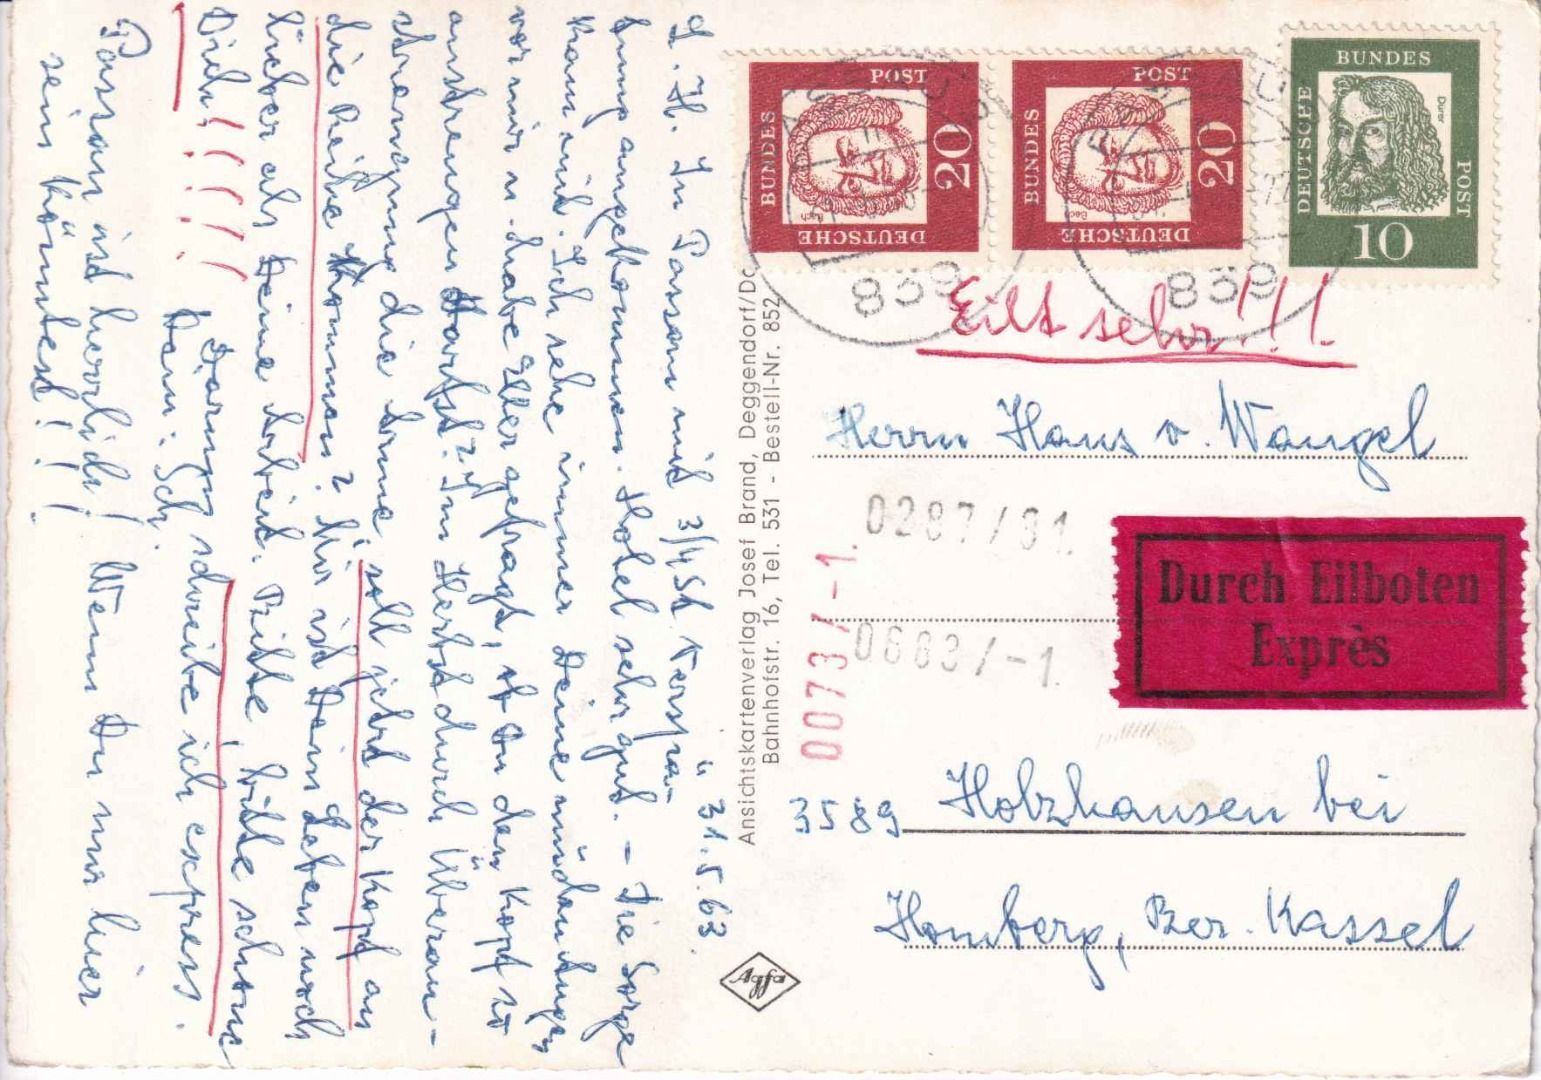 31.5.63.
L. H. In Passau mit 3/4 St. Verspä-
tung angekommen. Hotel sehr gut. – Die Sorge
kam mit. Ich sehe immer Deine müden Augen
vor mir u. habe Eller gefragt, ob Du den Kopf so
anstrengen darfst? Im Herbst durch Überan-
strengung die Arme, soll jetzt der Kopf an
die Reihe kommen? Mir ist Dein Leben noch
lieber als Deine Arbeit. Bitte, bitte schone
Dich!!!!!! Darum schreibe ich express.
Dein: Ich.
Passau ist herrlich! Wenn Du nur hier
sein könntest!!!
Ansichtskartenverlag Josef Brand, Deggendorf/Do
Bahnhofstr. 16, Tel. 531 - Bestell-Nr. 852
Agfa
DEUTSCHE
BUNDES
POST
20
Bach
DEUTSCHE
BUNDES
POST
20
Bach
DEUTSCHE
BUNDES
POST
10
Dürer
PASSAU
839
839
Eilt sehr!!!
Herrn Hans v. Wangel
0287/31.
0683/-1.
0073/-1.
Durch Eilboten
Exprès
3589 Holzhausen bei
Homberg, Bez. Kassel